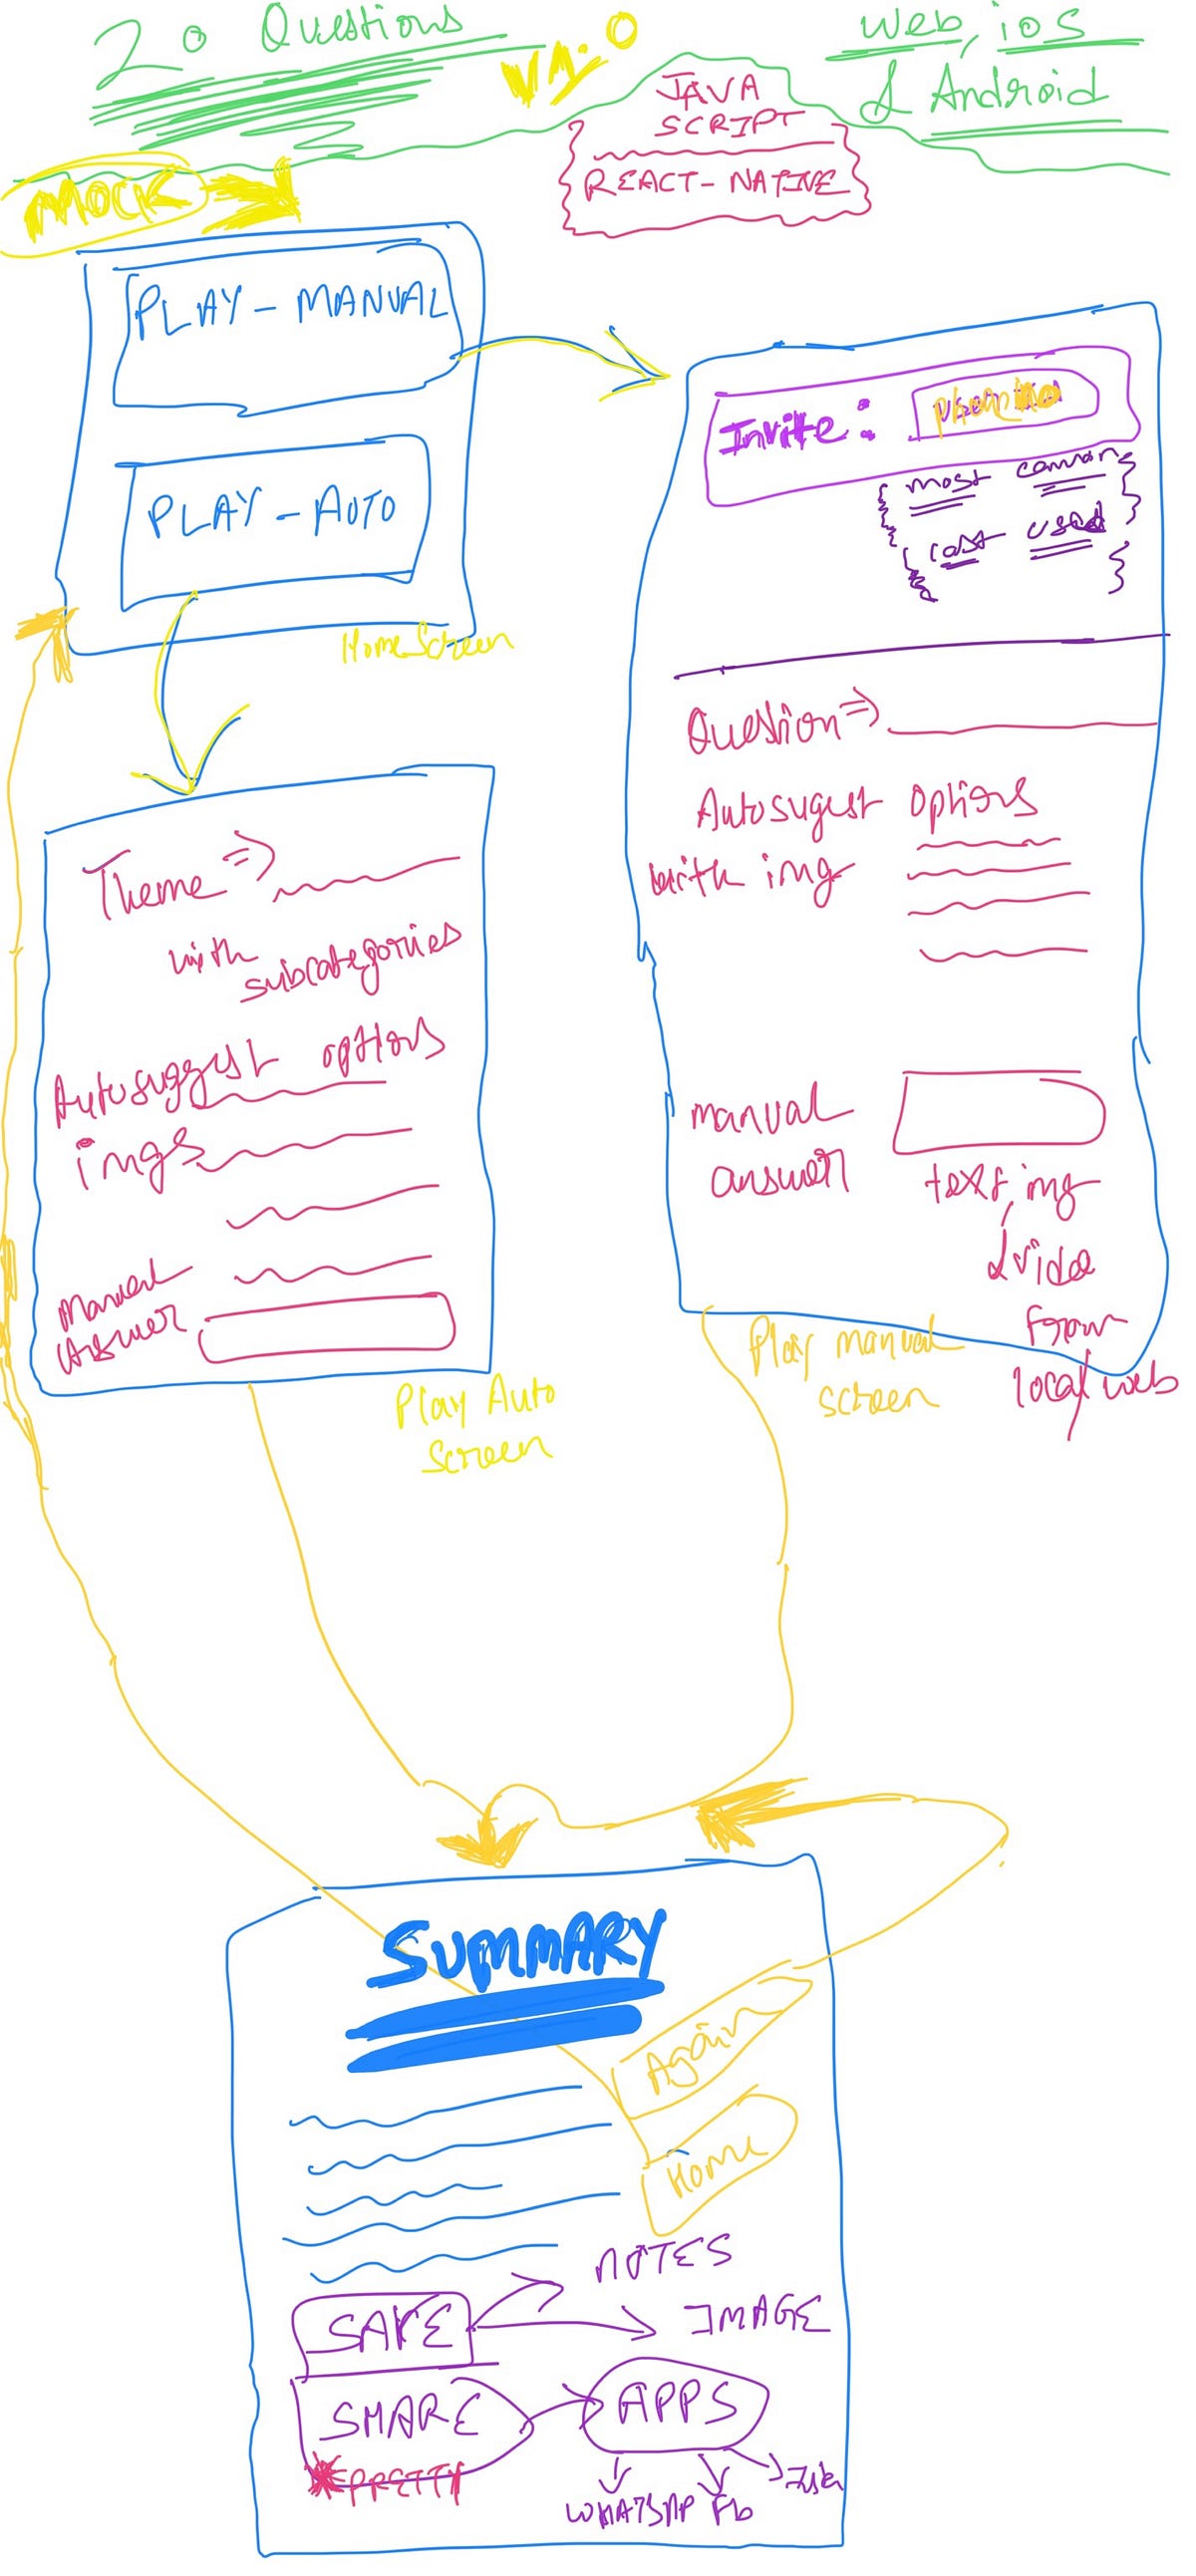 20 Questions
V1.0
web, ios
& Android
JAVA
SCRIPT
REACT-NATIVE
MOCK
PLAY - MANUAL
PLAY - AUTO
HomeScreen
Invite:
most common
last used
Question ⇒
Autosugest options
with img
manual
answer
text, img
& video
from
local/web
Play manual
screen
Theme ⇒
with
subcategories
Autosuggest options
imgs
Manual
Answer
Play Auto
Screen
SUMMARY
Again
Home
NOTES
SAVE
IMAGE
SHARE
APPS
PRETTY
WHATSAP Fb